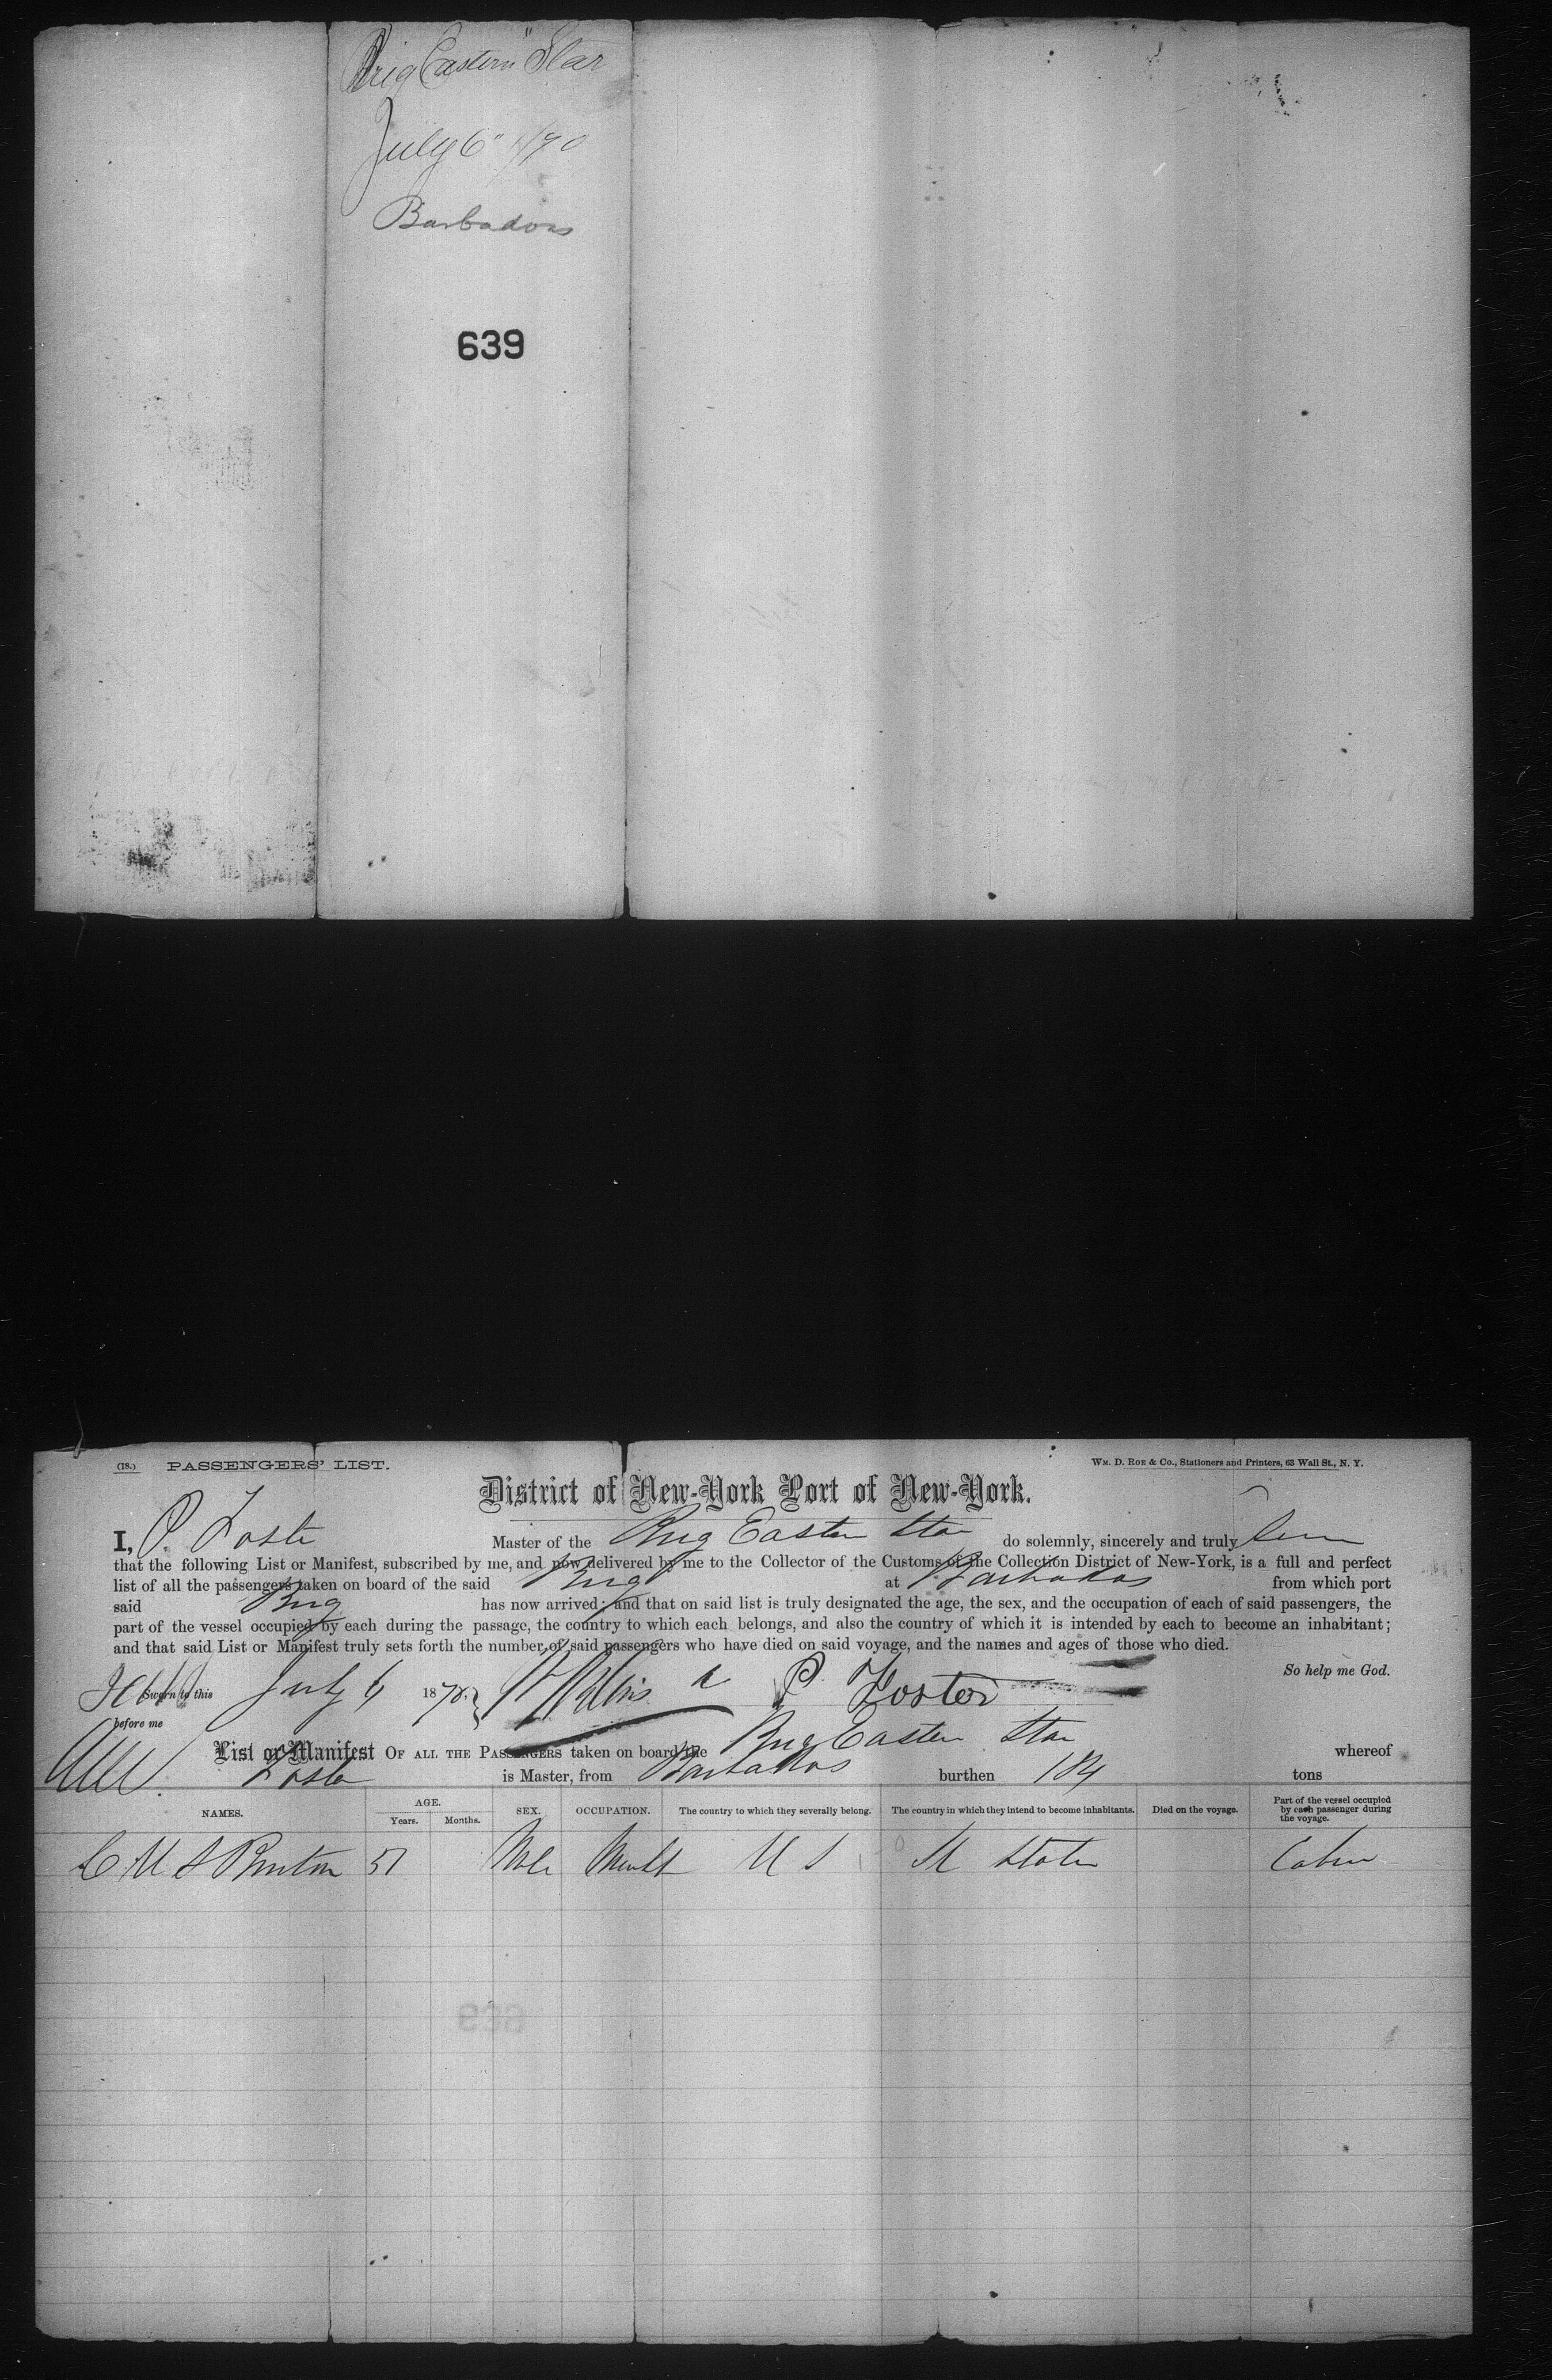 Brig Eastern Star
July 6" 1870
Barbados
639
(18.) PASSENGERS' LIST.
WM. D. ROE & Co., Stationers and Printers, 63 Wall St., N. Y.
District of New-York Port of New-York.
I, P. Foster Master of the Brig Eastern Star do solemnly, sincerely and truly
that the following List or Manifest, subscribed by me, and now delivered by me to the Collector of the Customs of the Collection District of New-York, is a full and perfect
list of all the passengers taken on board of the said Brig at Barbados from which port
said Brig has now arrived; and that on said list is truly designated the age, the sex, and the occupation of each of said passengers, the
part of the vessel occupied by each during the passage, the country to which each belongs, and also the country of which it is intended by each to become an inhabitant;
and that said List or Manifest truly sets forth the number of said passengers who have died on said voyage, and the names and ages of those who died.
So help me God.
Sworn to this July 6 1870. P. Foster
before me
List or Manifest OF ALL THE PASSENGERS taken on board the Brig Eastern Star whereof
Foster is Master, from Barbados burthen 184 tons
NAMES. AGE. SEX. OCCUPATION. The country to which they severally belong. The country in which they intend to become inhabitants. Died on the voyage. Part of the vessel occupied by each passenger during the voyage.
Years. Months.
51 Male Mercht U S U States Cabin